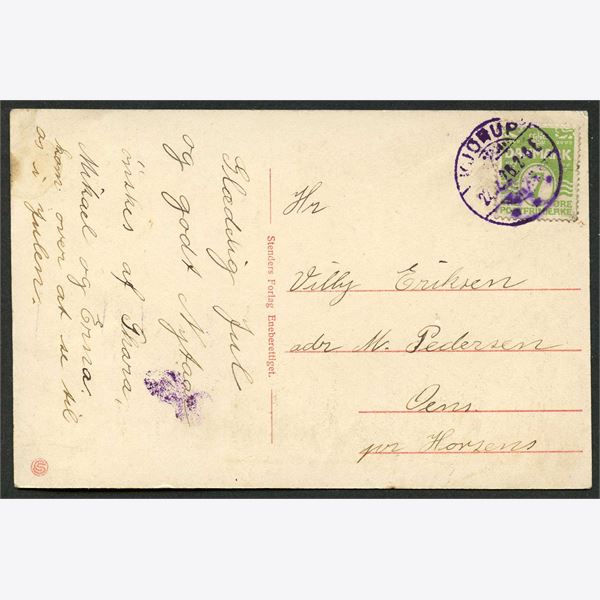 Glædelig Jul
og godt Nytaar
önskes af Thora,
Mikael og Erna.
kom over at se til
os i Julen.
Stenders Forlag Eneberettiget.
HJØRUP
DANMARK
7
POSTFRIMÆRKE
Hr
Villy Eriksen
adr M. Pedersen
Oens.
pr Horsens